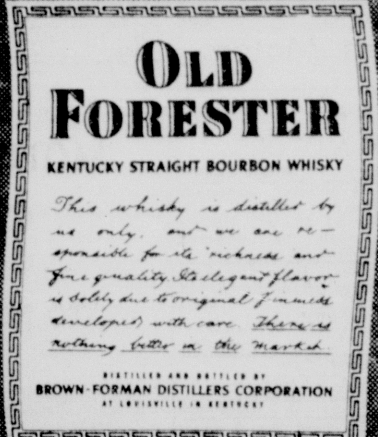 OLD
FORESTER
KENTUCKY STRAIGHT BOURBON WHISKY
This whisky is distilled by
us only, and we are re-
sponsible for its richness and
fine quality Its elegant flavor
is solely due to original fineness
developed with care. There is
nothing better in the market.
DISTILLED AND BOTTLED BY
BROWN-FORMAN DISTILLERS CORPORATION
AT LOUISVILLE IN KENTUCKY